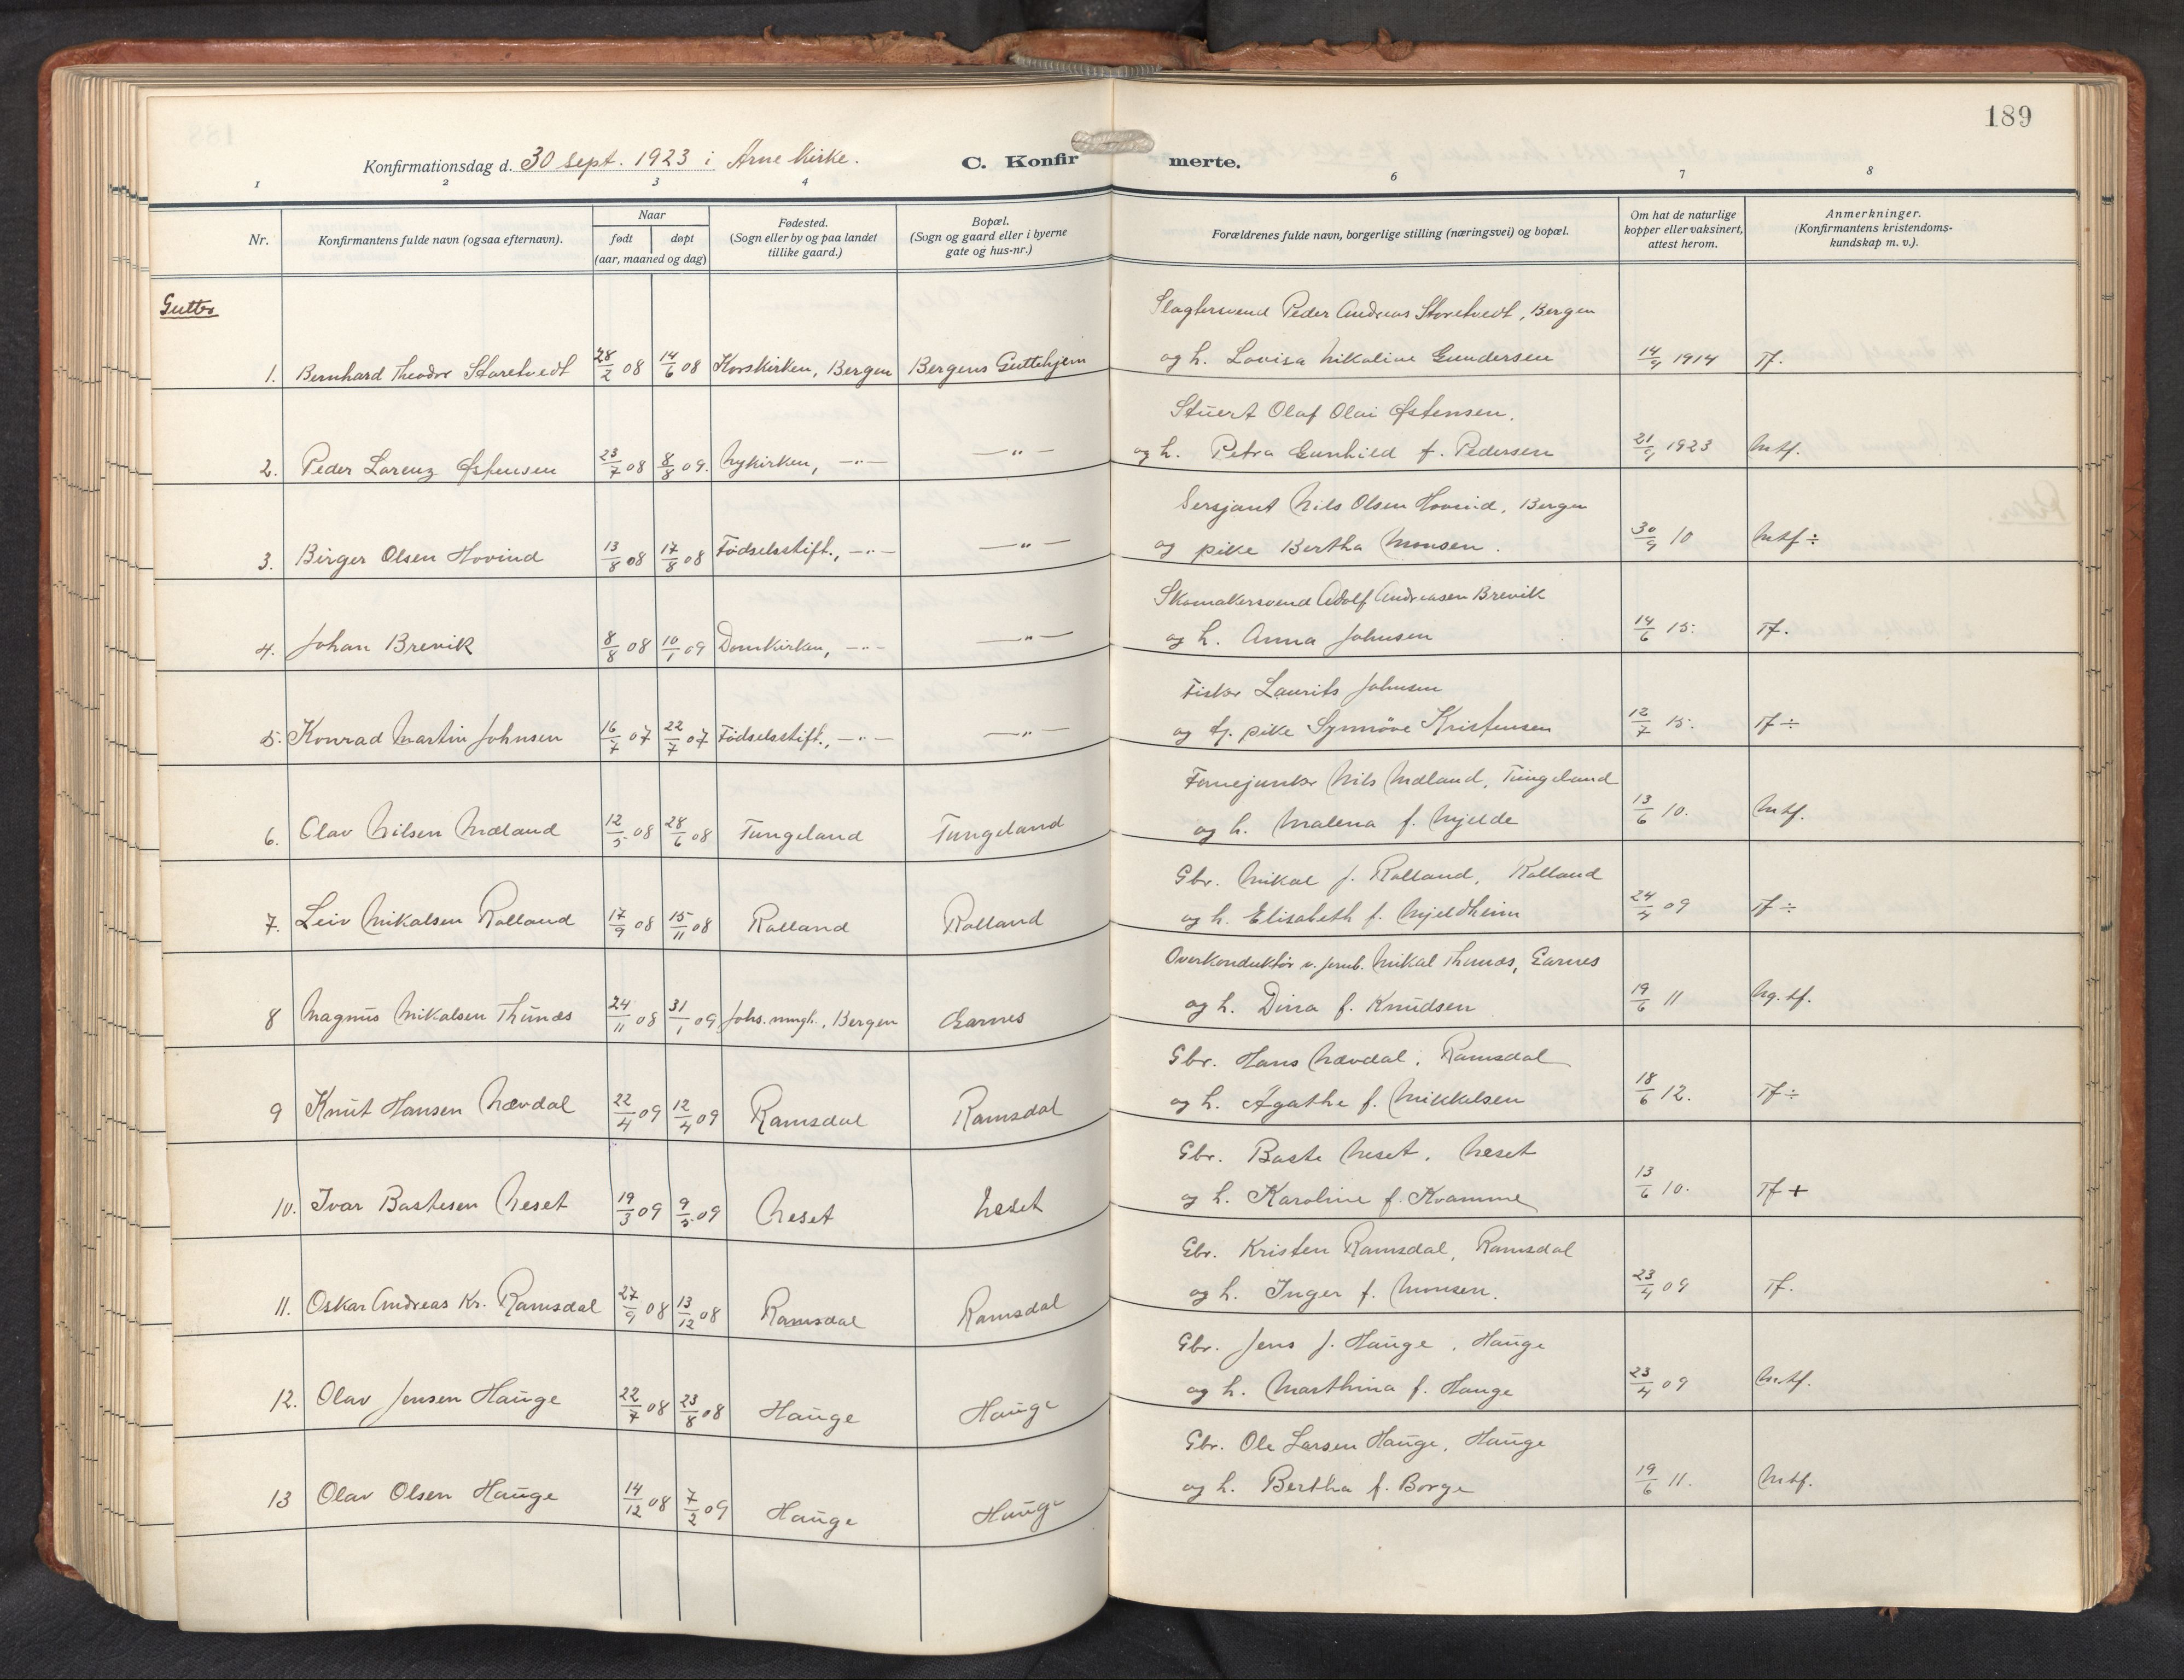 189
Konfirmationsdag d. 30 sept. 1923 i Arne kirke.
C. Konfirmerte.
1 2 3 4 6 7 8
Nr.
Konfirmantens fulde navn (ogsaa efternavn).
Naar
født døpt
(aar, maaned og dag)
Fødested.
(Sogn eller by og paa landet
tillike gaard.)
Bopæl.
(Sogn og gaard eller i byerne
gate og hus-nr.)
Forældrenes fulde navn, borgerlige stilling (næringsvei) og bopæl.
Om hat de naturlige
kopper eller vaksinert,
attest herom.
Anmerkninger.
(Konfirmantens kristendoms-
kundskap m. v.).
Gutter
Slagtersvend Peder Andreas Storetvedt, Bergen
1. Bernhard Theodor Storetvedt 28/2 08 14/6 08 Korskirken, Bergen Bergens Guttehjem og h. Lovisa Nikoline Gundersen 14/9 1914 Tf.
Stuert Olaf Olai Østensen.
2. Peder Lorenz Østensen 23/7 08 8/8 09. Nykirken, —"— —"— og h. Petra Gunhild f. Pedersen 21/9 1923 Mtf.
Sersjant Nils Olsen Hovind, Bergen
3. Birger Olsen Hovind 13/8 08 17/8 08 Fødselsstift., —"— —"— og pike Bertha Monsen. 30/9 10 Mtf ÷
Skomakersvend Adolf Andreasen Brevik
4. Johan Brevik 8/8 08 10/1 09 Domkirken, —"— —"— og h. Anna Johnsen 14/6 15. Tf.
Fisker Laurits Johnsen
5. Konrad Martin Johnsen 16/7 07 22/7 07 Fødselsstift., —"— —"— og tj. pike Synnøve Kristensen 12/7 15. Tf ÷
Fanejunker Nils Mæland, Tungeland
6. Olav Nilsen Mæland 12/5 08 28/6 08 Tungeland Tungeland og h. Malena f. Mjelde 13/6 10. Mtf.
Gbr. Mikal J. Rolland, Rolland
7. Leiv Mikalsen Rolland 17/9 08 15/11 08 Rolland Rolland og h. Elisabeth f. Mjeldheim 24/4 09 Tf ÷
Overkonduktør v. jernb. Mikal Thunæs, Garnes
8 Magnus Mikalsen Thunæs 24/11 08 31/1 09 Johs. mngh., Bergen Garnes og h. Dina f. Knudsen 19/6 11 Mg. tf.
Gbr. Hans Nævdal, Ramsdal
9 Knut Hansen Nævdal 22/4 09 12/4 09 Ramsdal Ramsdal og h. Agathe f. Mikkelsen 18/6 12. Tf ÷
Gbr. Baste Neset, Neset
10. Ivar Bastesen Neset 19/3 09 9/5 09 Neset Neset og h. Karoline f. Kvamme 13/6 10. Tf +
Gbr. Kristen Ramsdal, Ramsdal
11. Oskar Andreas Kr. Ramsdal 27/9 08 13/12 08 Ramsdal Ramsdal og h. Inger f. Monsen. 23/4 09 Tf.
Gbr. Jens J. Hauge, Hauge
12. Olav Jensen Hauge 22/7 08 23/8 08 Hauge Hauge og h. Marthina f. Hauge 23/4 09 Mtf.
Gbr. Ole Larsen Hauge, Hauge
13 Olav Olsen Hauge 14/12 08 7/2 09 Hauge Hauge og h. Bertha f. Borge 19/6 11. Mtf.